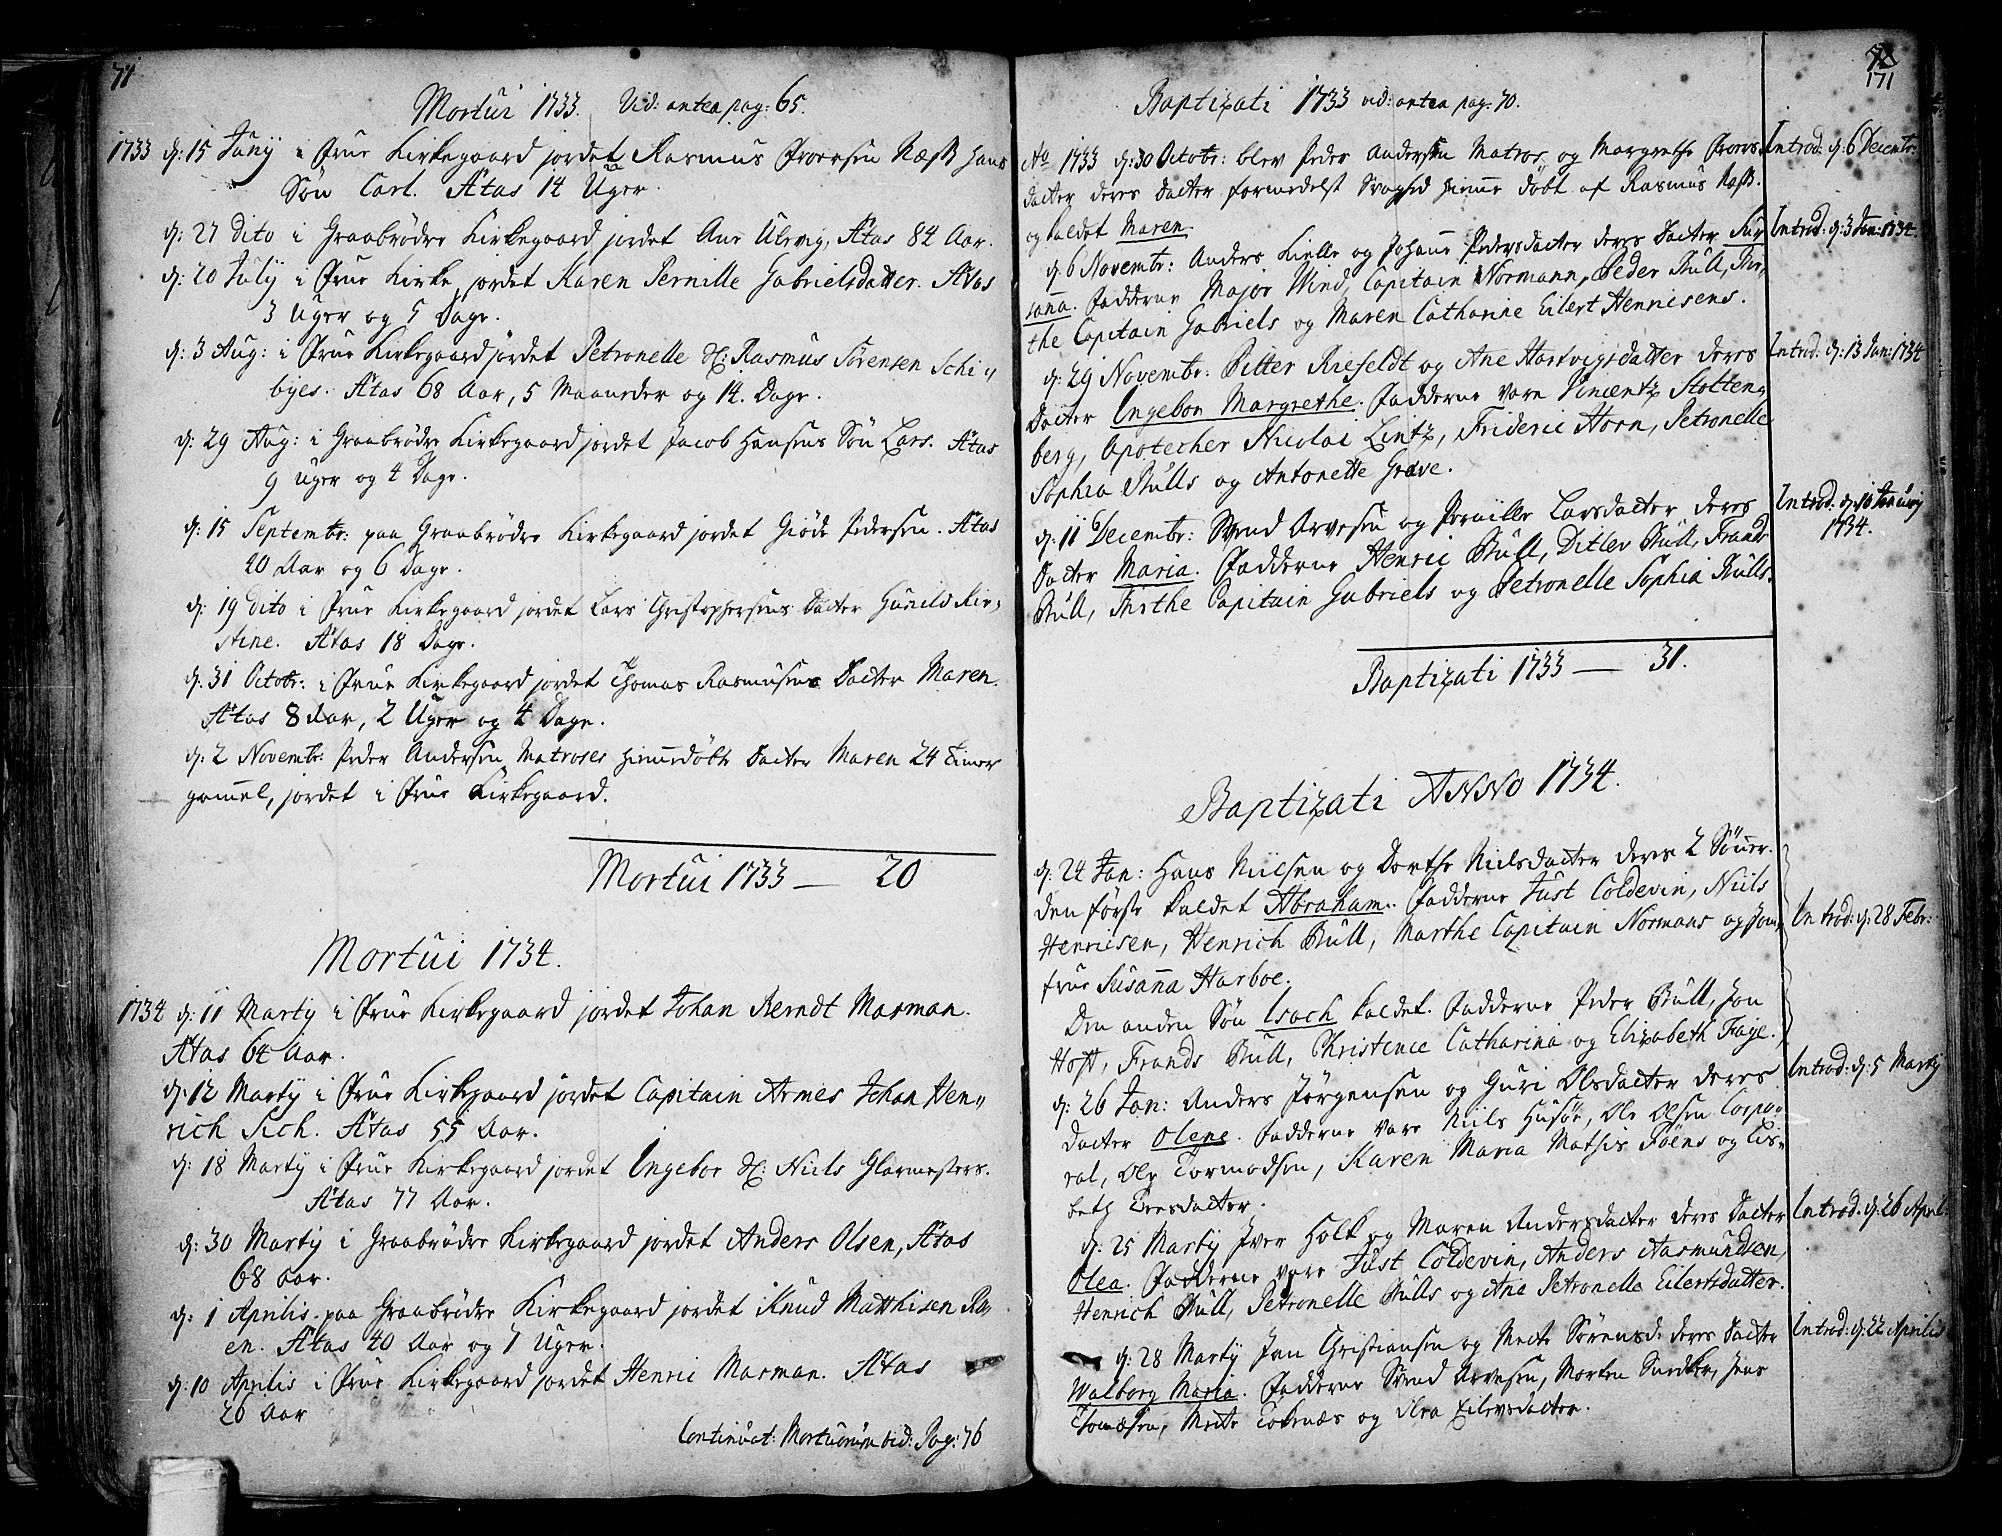 71
Mortui 1733. Vid: antea pag: 65.
1733 d: 15 Junij i Frue Kirkegaard jordet Rasmus Iversen Næss hans
Søn Carl. Ætas 14 Uger.
d: 27 dito i Graabrødre Kirkegaard jordet Ane Ulvig, Ætas 84 Aar.
d: 20 Julij i Frue Kirke jordet Karen Pernille Gabrielsdatter. Ætas
3 Uger og 5 Dage.
d: 3 Aug: i Frue Kirkegaard jordet Petronelle Rasmus Sörensen Schi„
byes. Ætas 68 Aar, 5 Maaneder og 14. Dage.
d: 29 Aug: i Graabrødre Kirkegaard jordet Jacob Hansens Søn Lars. Ætas
9 Uger og 4 Dage.
d: 15 Septembr: paa Graabrødre Kirkegaard jordet Giöde Pedersen. Ætas
20 Aar og 6 Dage.
d: 19 dito i Frue Kirkegaard jordet Lars Christophersens Dacter Gunild Kir„
stine. Ætas 18 Dage.
d. 31 Octobr: i Frue Kirkegaard jordet Thomas Rasmusens Dacter Maren.
Ætas 8 Aar, 2 Uger og 4 Dage.
d: 2 Novembr: Peder Andersen Matroses hiemmedöbte Dacter Maren 24 Timer
gammel, jordet i Frue Kirkegaard.
Mortui 1733 — 20
Mortui 1734.
1734 d: 11 Martij i Frue Kirkegaard jordet Johan Berndt Marman.
Ætas 64 Aar.
d: 12 Martij i Frue Kirkegaard jordet Capitain Armes Johan Hen„
rich Sich. Ætas 55 Aar.
d: 18 Martij i Frue Kirkegaard jordet Ingebor Niels Glarmesters.
Ætas 77 Aar.
d: 30 Martij i Graabrødre Kirkegaard jordet Anders Olsen, Ætas
68 Aar.
d: 1 Aprilis paa Graabrødre Kirkegaard jordet Knud Matthisen
en. Ætas 40 Aar og 1 Uger.
d: 10 Aprilis i Frue Kirkegaard jordet Henric Marman. Ætas
26 Aar
Continuat: Mortuorum vid: Pag: 76
72
171
Baptizati 1733 vid: antea pag. 70.
Ao 1733 d: 30 Octobr: blev Peder Andersen Matros og Margrethe Ivers„
dacter deres Dacter formedelst Svaghed hiemme döbt af Rasmus Næss.
og kaldet Maren.
Introd: d: 6 Decembr:
d: 6 Novembr: Anders Kielle og Johanne Pedersdacter deres Dacter Su„
sanna. Fadderne Major Wind, Capitain Normann, Peder Büll, Mar„
the Capitain Gabriels og Maren Catharine Eilert Henricsens.
Introd: d: 3 Jan: 1734.
d: 29 Novembr: Pitter Riefeldt og Ane Hartvigsdatter deres
Dacter Ingebor Margrethe. Fadderne vare Vincentz Stolten„
berg, Apotecher Nicolai Lintz, Frideric Horn, Petronelle
Sophia Bülls og Antonette Greve.
Introd: d: 13 Jan: 1734
d: 11 Decembr: Svend Arvesen og Pernille Larsdacter deres
Dacter Maria. Fadderne Henric Büll, Ditlev Büll, Frands
Büll, Marthe Capitain Gabriels og Petronelle Sophia Bülls.
Introd: d: 10 Januarij
1734.
Baptizati 1733 — 31.
Baptizati ANNO 1734.
d: 24 Jan: Hans Nielsen og Dorthe Nielsdacter deres 2 Sönner.
den förste kaldet Abraham. Fadderne Just Coldevin, Niels
Henricsen, Henrich Büll, Marthe Capitain Normans og Jom„
frue Susanna Harboe.
Introd: d: 28 Febr:
Den anden Søn Isach kaldet. Fadderne Peder Büll, Jon
Hoff, Frands Büll, Christence Catharina og Elizabeth Faye.
d: 26 Jan: Anders Jörgensen og Guri Olsdacter deres
Dacter Olene. Fadderne vare Niels Husöe, Ole Olsen Corpo„
ral, Ole Tormodsen, Karen Maria Mathis Föens og Lis„
beth Iversdacter.
Introd: d: 5 Martij
d: 25 Martij Iver Holk og Maren Andersdacter deres Dacter
Olea. Fadderne vare Just Coldevin, Anders Aasmundsen,
Henrich Büll, Petronelle Bülls og Ane Petronella Eilertsdatter.
Introd: d: 26 April:
d: 28 Martij Jan Christiansen og Mette Sörensd: deres Dacter
Walborg Maria. Fadderne Svend Arvesen, Morten Snedker, Jens
Thomæsen, Mette Tokenæs og Olea Eilersdacter.
Introd: d: 22 Aprilis